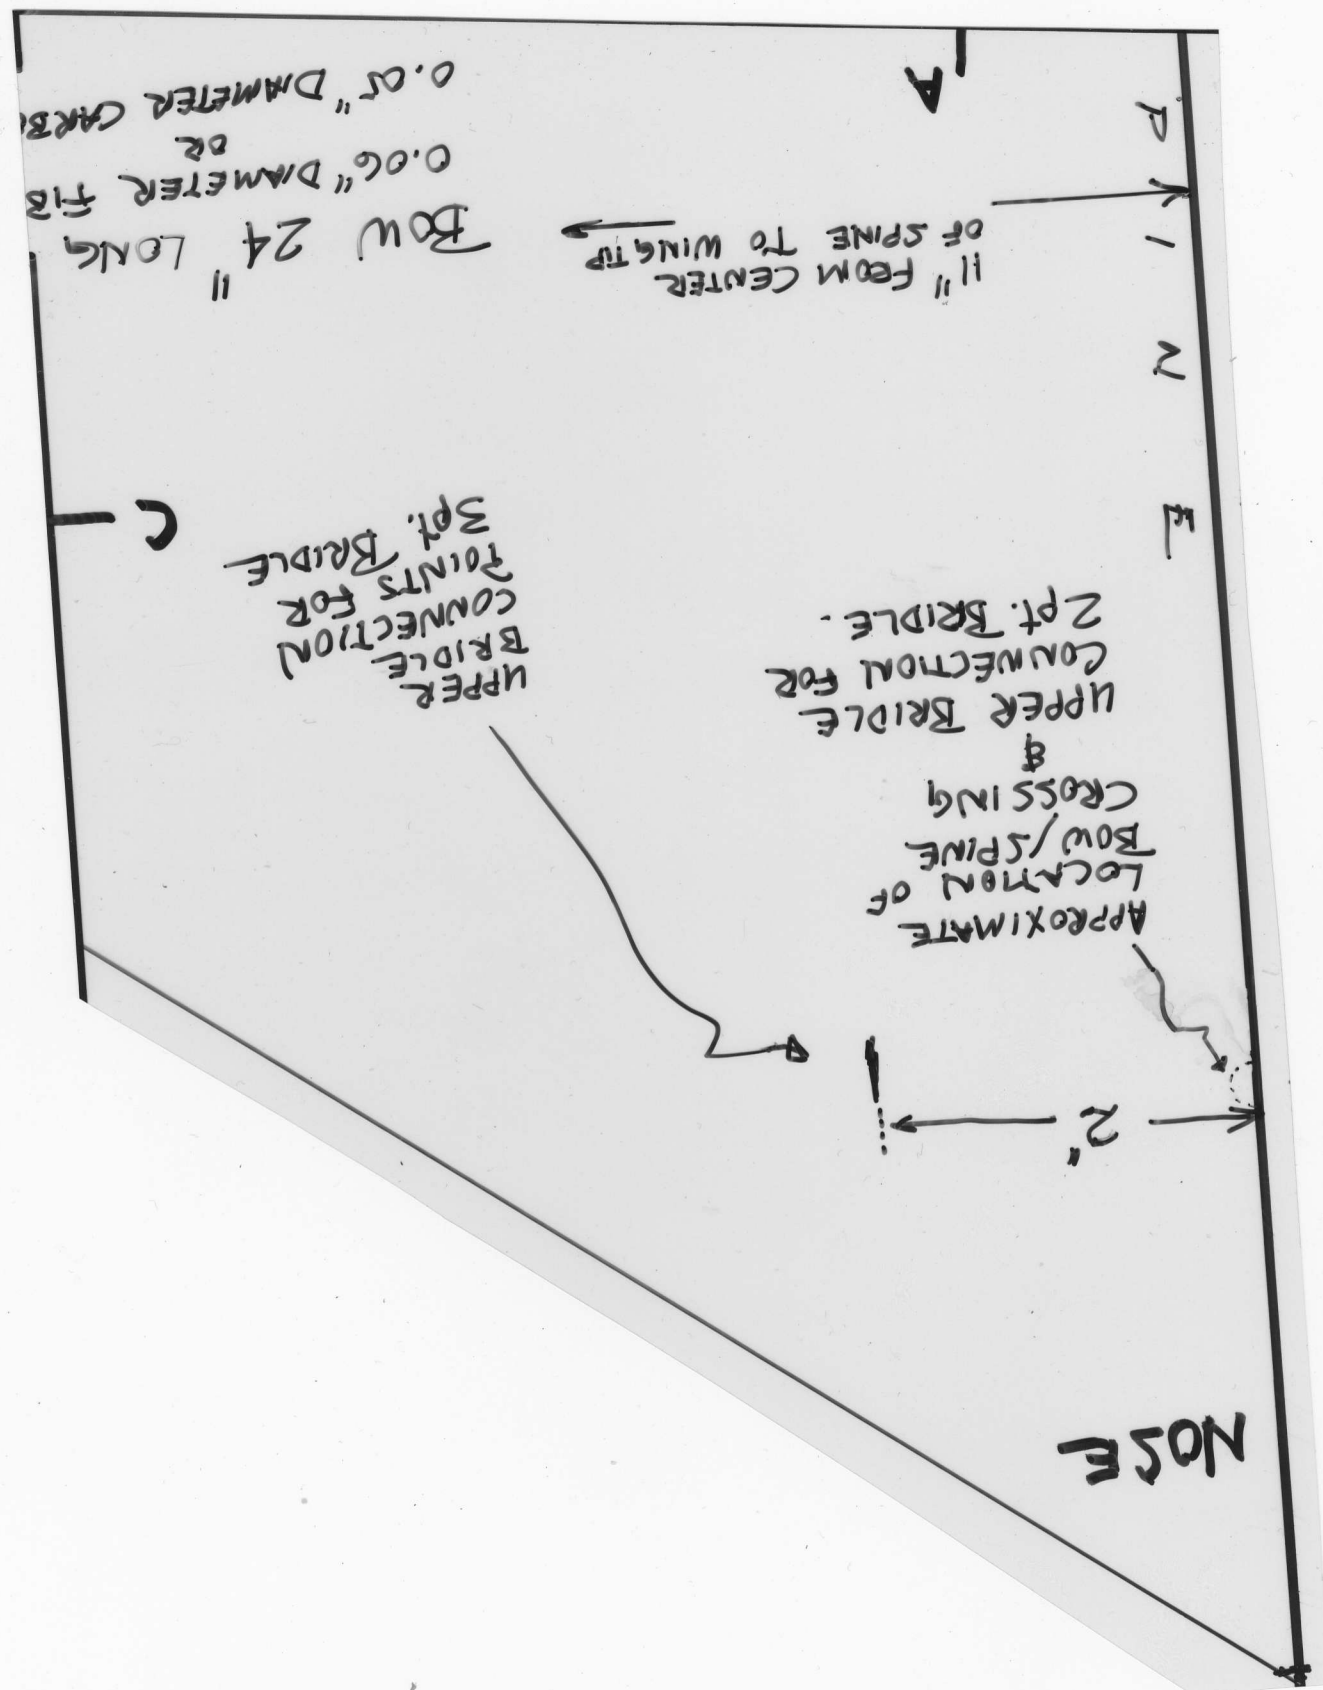 NOSE
2"
APPROXIMATE
LOCATION OF
BOW/SPINE
CROSSING
&
UPPER BRIDLE
CONNECTION FOR
2 pt. BRIDLE.
UPPER
BRIDLE
CONNECTION
POINTS FOR
3pt. BRIDLE
C
P I N E
11" FROM CENTER
OF SPINE TO WINGTIP
BOW 24" LONG
0.06" DIAMETER FIB
OR
0.05" DIAMETER CARB
A